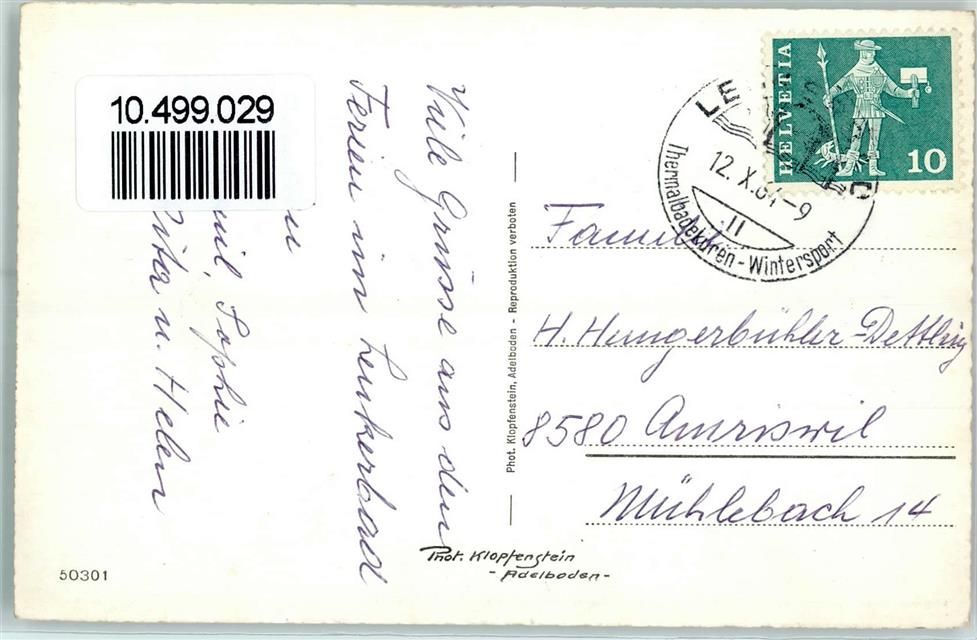 10.499.029
Viele Grüsse aus den
Ferien im Leukerbad
Sophie
Rita u. Helen
50301
Phot. Klopfenstein
- Adelboden -
Phot. Klopfenstein, Adelboden - Reproduktion verboten
HELVETIA
10
LE
12. X. 64-9
II
Thermalbadekuren - Wintersport
Familie
H. Hungerbühler-Dettling
8580 Amriswil
Mühlebach 14